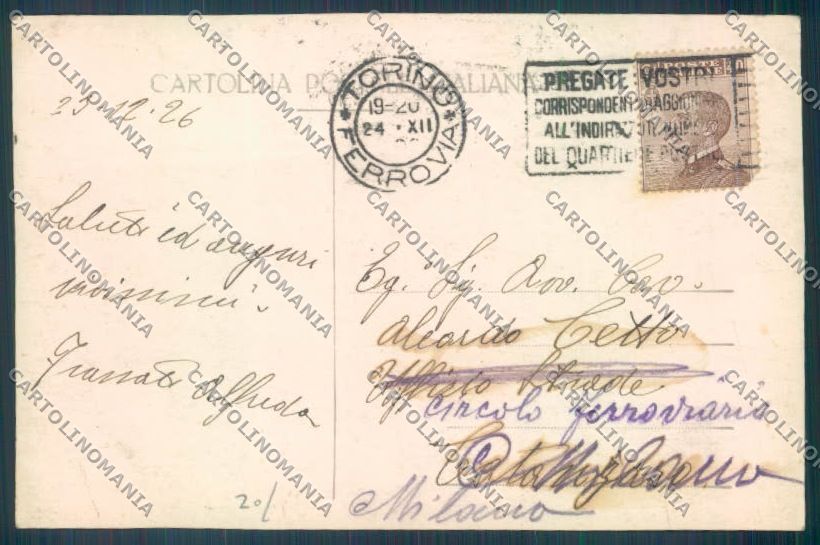 CARTOLINA POSTALE ITALIANA
23-12-26
TORINO
19-20
24 · XII
FERROVIA
PREGATE I VOSTRI
CORRISPONDENTI
ALL'INDIRIZZO
DEL QUARTIERE POSTALE
POSTE
Saluti ed auguri
Alfredo
Eg. Sig. Avv. Cav.
Aleardo Cetto
Ufficio Strade
Circolo ferroviario
Milano
20/
CARTOLINOMANIA